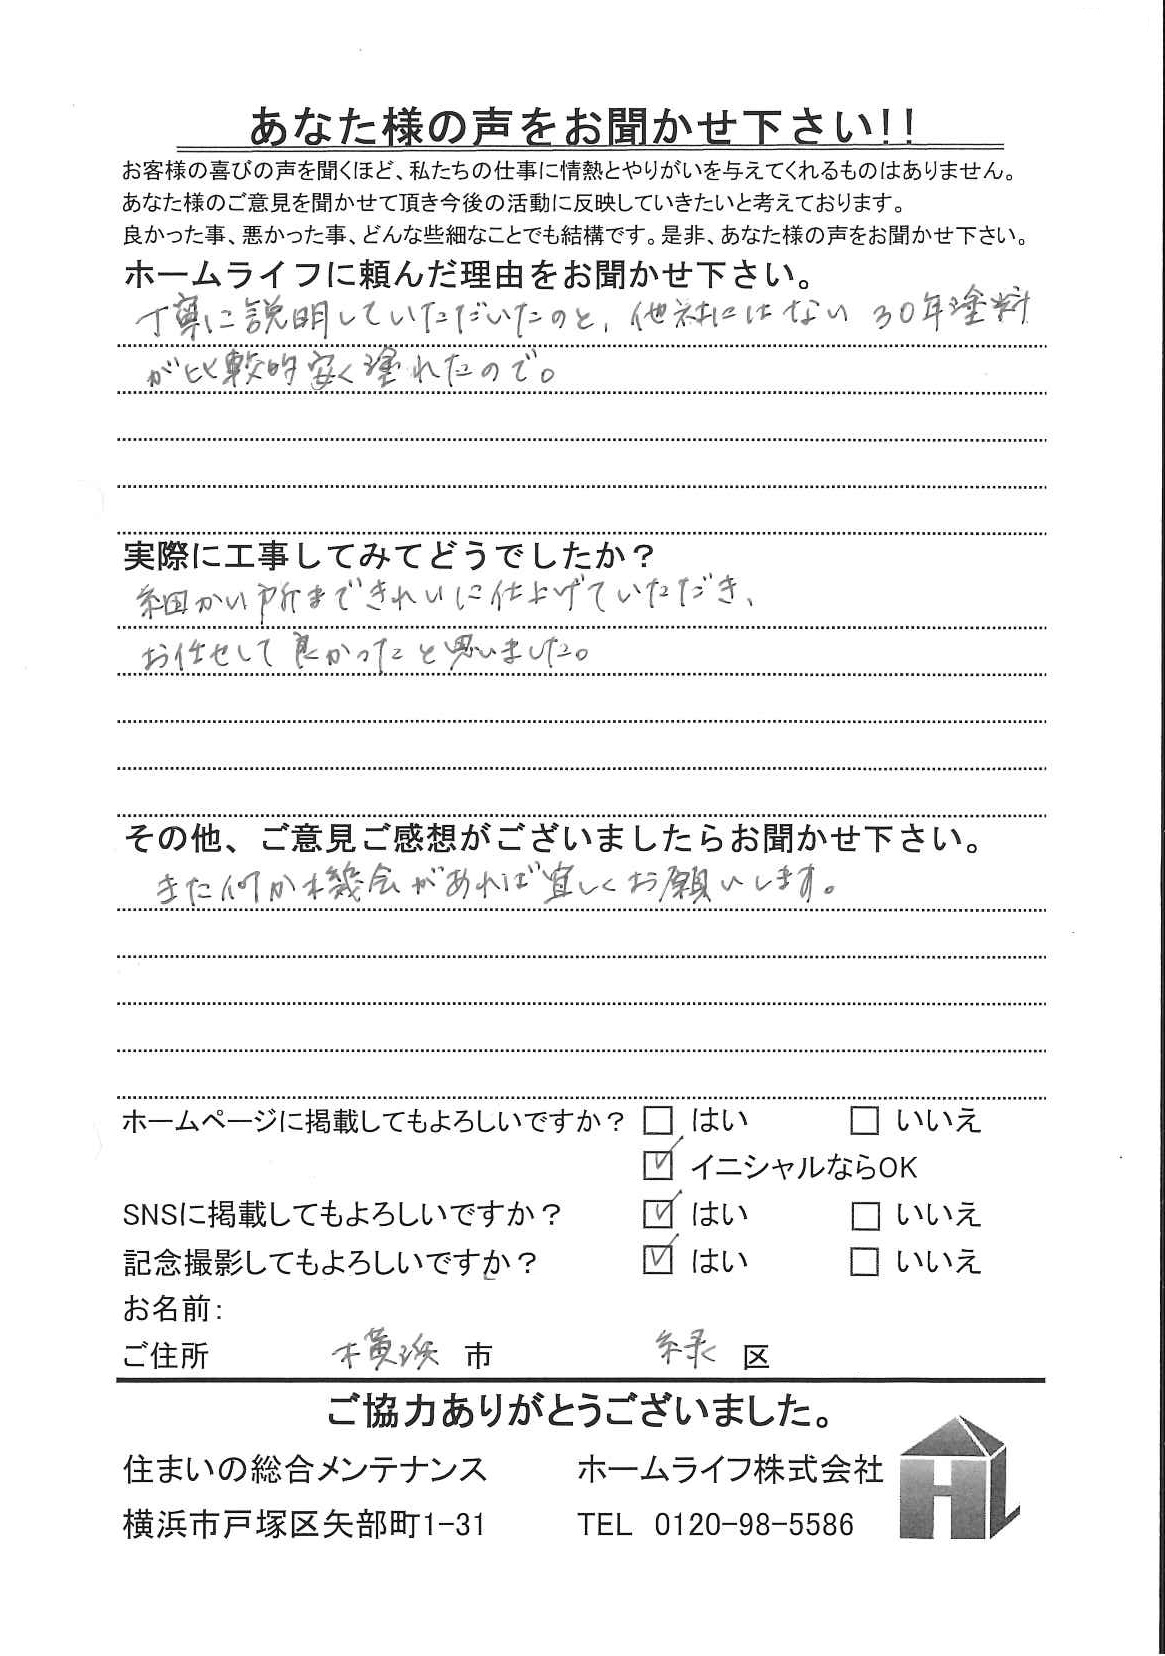 あなた様の声をお聞かせ下さい!!
お客様の喜びの声を聞くほど、私たちの仕事に情熱とやりがいを与えてくれるものはありません。
あなた様のご意見を聞かせて頂き今後の活動に反映していきたいと考えております。
良かった事、悪かった事、どんな些細なことでも結構です。是非、あなた様の声をお聞かせ下さい。
ホームライフに頼んだ理由をお聞かせ下さい。
丁寧に説明していただいたのと、他社にはない30年塗料
が比較的安く塗れたので。
実際に工事してみてどうでしたか？
細かい所まできれいに仕上げていただき、
お任せして良かったと思いました。
その他、ご意見ご感想がございましたらお聞かせ下さい。
また何か機会があれば宜しくお願いします。
ホームページに掲載してもよろしいですか？ □ はい □ いいえ
☑ イニシャルならOK
SNSに掲載してもよろしいですか？ ☑ はい □ いいえ
記念撮影してもよろしいですか？ ☑ はい □ いいえ
お名前:
ご住所 横浜 市 緑 区
ご協力ありがとうございました。
住まいの総合メンテナンス ホームライフ株式会社
横浜市戸塚区矢部町1-31 TEL 0120-98-5586
HL